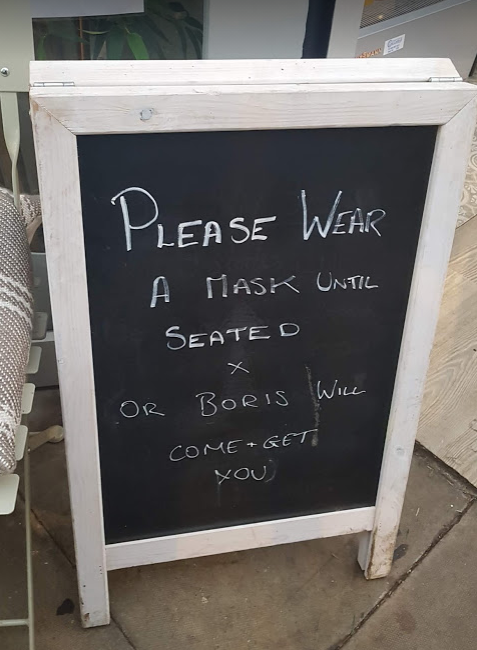 PLEASE WEAR
A MASK UNTIL
SEATED
x
OR BORIS WILL
COME + GET
YOU